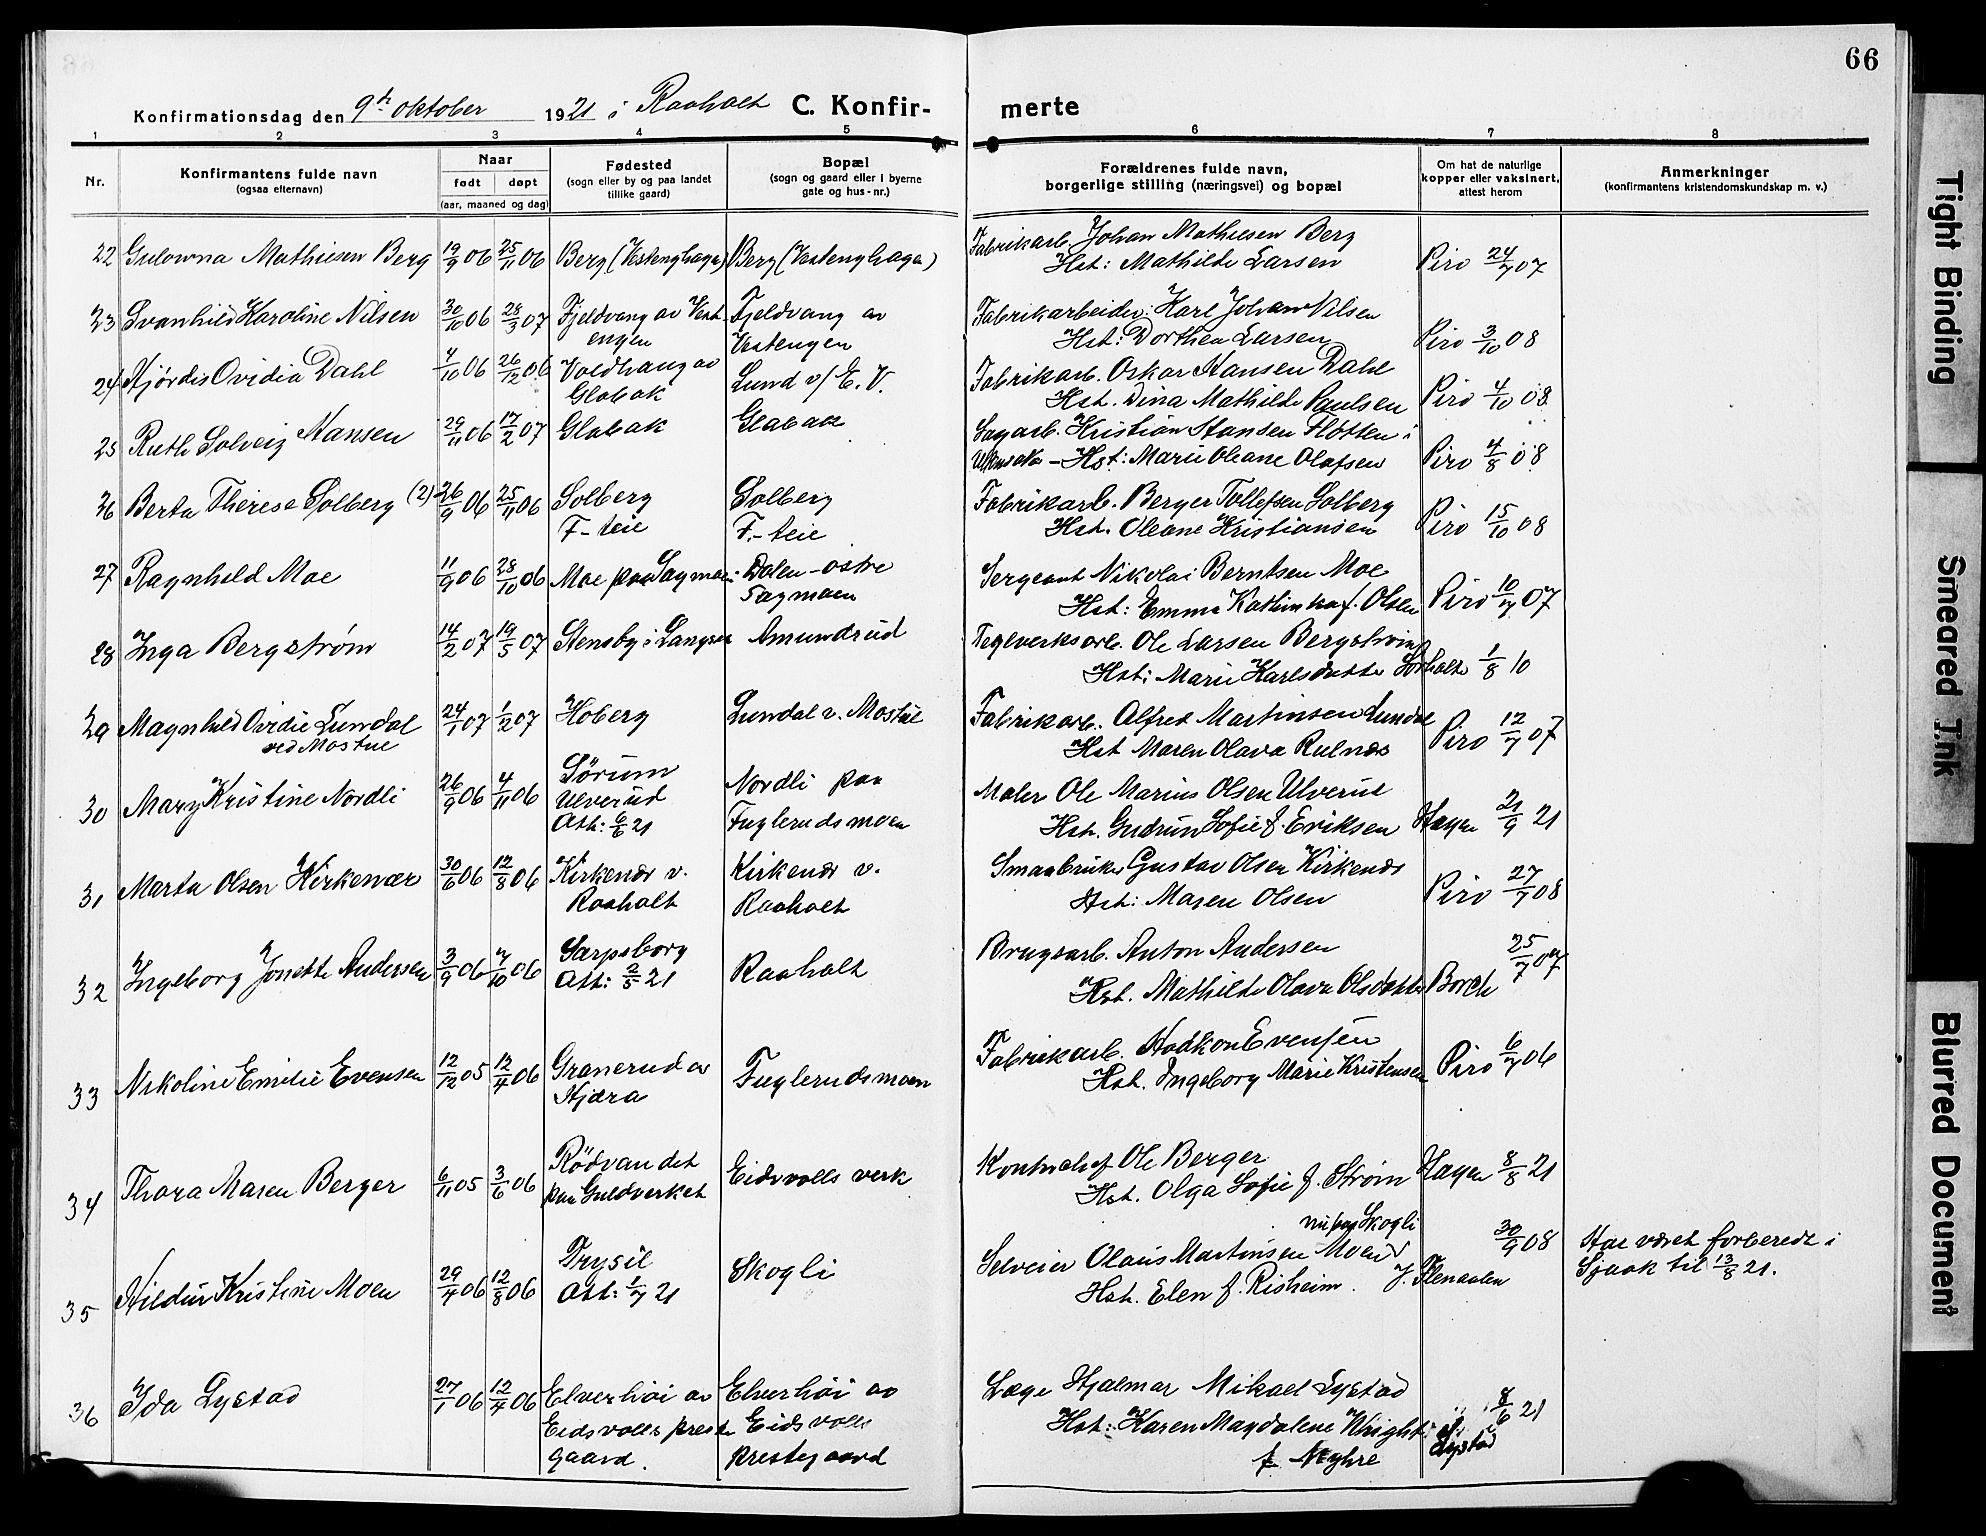 66
Konfirmationsdag den 9de oktober 1921 i Raaholt C. Konfir-
merte
1 2 3 4 5 6 7 8
Nr.
Konfirmantens fulde navn
(ogsaa efternavn)
Naar
født døpt
(aar, maaned og dag)
Fødested
(sogn eller by og paa landet
tillike gaard)
Bopæl
(sogn og gaard eller i byerne
gate og hus-nr.)
Forældrenes fulde navn,
borgerlige stilling (næringsvei) og bopæl
Om hat de naturlige
kopper eller vaksinert,
attest herom
Anmerkninger
(konfirmantens kristendomskundskap m. v.)
22 Gulowna Mathiesen Berg 19/9 06 25/11 06 Berg (Vestenghagen) Berg (Vestenghagen) Fabrikarb. Johan Mathiesen Berg
Hst: Mathilde Larsen Piro 24/7 07
23 Svanhild Karoline Nilsen 30/10 06 28/3 07 Fjeldvang av Vest- Fjeldvang av Fabrikarbeider Karl Johan Nilsen
engen Vestengen Hst: Dorthea Larsen Piro 3/10 08
24 Hjørdis Ovidia Dahl 4/10 06 26/12 06 Voldhaug av Lund v/ E. V. Fabrikarb. Oskar Hansen Dahl
Glabak Hst. Dina Mathilde Paulsen Piro 4/10 08
25 Ruth Solveig Hansen 29/11 06 17/2 07 Glabak Glabak Sagarb. Kristian Hansen Fløtten i
Ullensaker - Hst: Marie Oleane Olafsen Piro 4/8 08
26 Berta Therese Solberg (2) 26/9 06 25/11 06 Solberg Solberg Fabrikarb. Berger Tollefsen Solberg
F-teie F.-teie Hst. Oleane Kristiansen Piro 15/10 08
27 Ragnhild Moe 11/9 06 28/10 06 Moe paa Sagmoen Dalen-østre Sergeant Nikolai Berntsen Moe
Sagmoen Hst: Emma Kathinka f. Olsen Piro 10/7 07
28 Inga Bergstrøm 14/2 07 19/5 07 Stensby i Langset Amundrud Teglverksarb. Ole Larsen Bergstrøm
Hst: Marie Karlsdatter Sørholte 1/8 10
29 Magnhild Ovidie Lundal 24/1 07 1/2 07 Hoberg Lundal v. Mostue Fabrikarb. Alfred Martinsen Lundal
ved Mostue Hst Maren Olava Rulnæs Piro 12/7 07
30 Mary Kristine Nordli 26/9 06 4/11 06 Sørum Nordli paa Maler Ole Marius Olsen Ulverud
Ulverud
Att: 6/6 21 Fuglerudsmoen Hst. Gudrun Sofie f. Eriksen Hagen 21/9 21
31 Marta Olsen Kirkenær 30/6 06 12/8 06 Kirkenær v. Kirkenær v. Smaabruker Gustav Olsen Kirkenær
Raaholt Raaholt Hst: Maren Olsen Piro 27/7 08
32 Ingeborg Jonette Andersen 3/9 06 7/10 06 Sarpsborg Raaholt Brugsarb. Anton Andersen 25/7 07
Att: 2/5 21 Hst. Mathilde Olava Olsdatter Borch
33 Nikoline Emilie Evensen 12/12 05 12/4 06 Granerud av Fuglerudsmoen Fabrikarb. Haakon Evensen
Hjæra Hst. Ingeborg Marie Kristensen Piro 6/7 06
34 Thora Maren Berger 6/11 05 3/6 06 Rödvandet Eidsvolls verk Kontorchef Ole Berger
paa Guldverket Hst. Olga Sofie f. Strøm Hagen 8/8 21
35 Hildur Kristine Moen 29/4 06 12/8 06 Trysil Skogli Selveier Olaus Martinsen Moen Skogli 30/9 08 Har været forberedt i
Att: 1/7 21 Hst. Elen f. Risheim. J. Flenaalen Sjaak til 13/8 21.
36 Ida Lystad 27/1 06 12/4 06 Elverhöi av Elverhöi av Læge Hjalmar Mikael Lystad 8/6 21
Eidsvolls preste Eidsvolls Hst: Karen Magdalene Wright Hj. Lystad
gaard. prestegaard f. Neyhre
Tight Binding
Smeared Ink
Blurred Document